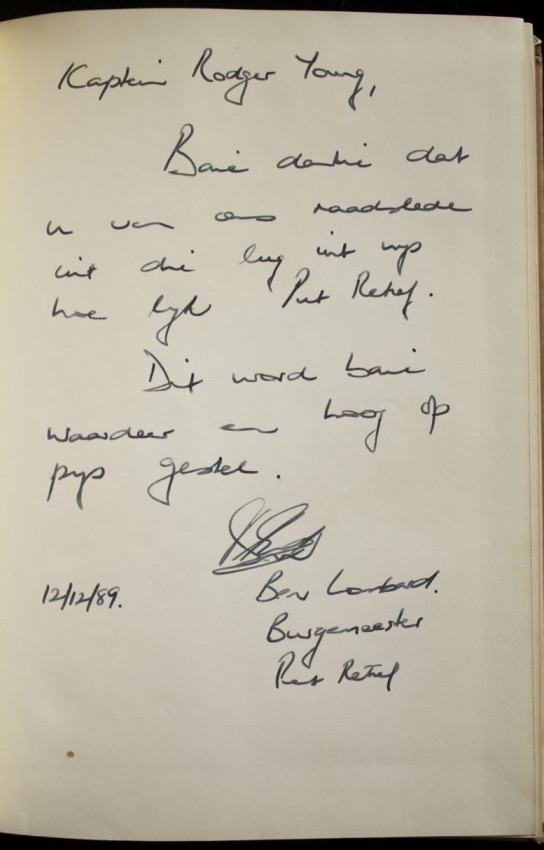 Kaptein Rodger Young,
Baie dankie dat
u van ons raadslede
uit die lug uit wys
hoe lyk Piet Retief.
Dit word baie
waardeer en hoog op
prys gestel.
12/12/89.
Ben Lombard.
Burgemeester
Piet Retief